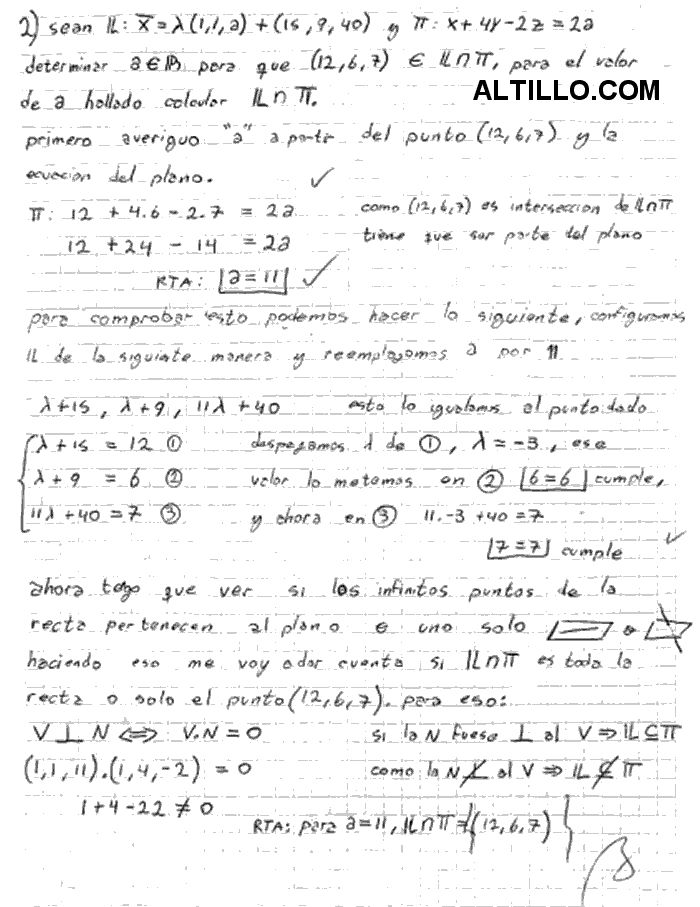 2) sean 𝕃: X̅ = λ(1,1,a) + (15,9,40) y π: x+4y-2z = 2a
determinar a∈ℝ para que (12,6,7) ∈ 𝕃∩π, para el valor
de a hallado calcular 𝕃∩π.
ALTILLO.COM
primero averiguo "a" a partir del punto (12,6,7) y la
ecuacion del plano. ✓
π: 12 + 4.6 - 2.7 = 2a
como (12,6,7) es interseccion de 𝕃∩π
12 + 24 - 14 = 2a
tiene que ser parte del plano
RTA: a = 11 ✓
para comprobar esto podemos hacer lo siguiente, configuramos
𝕃 de la siguiente manera y reemplazamos a por 11
λ+15, λ+9, 11λ+40 esto lo igualamos al punto dado
λ+15 = 12 ① despejamos λ de ①, λ = -3, ese
λ+9 = 6 ② valor lo metemos en ② 6=6 cumple,
11λ+40=7 ③ y ahora en ③ 11.-3 +40=7
7=7 cumple ✓
ahora tengo que ver si los infinitos puntos de la
recta pertenecen al plano o uno solo
haciendo eso me voy a dar cuenta si 𝕃∩π es toda la
recta o solo el punto (12,6,7). para eso:
V ⊥ N ⟺ V.N = 0 si la N fuese ⊥ al V ⇒ 𝕃⊆π
(1,1,11).(1,4,-2) = 0 como la N ⊥̸ al V ⇒ 𝕃⊈π
1+4-22 ≠ 0
RTA: para a=11, 𝕃∩π={(12,6,7)}